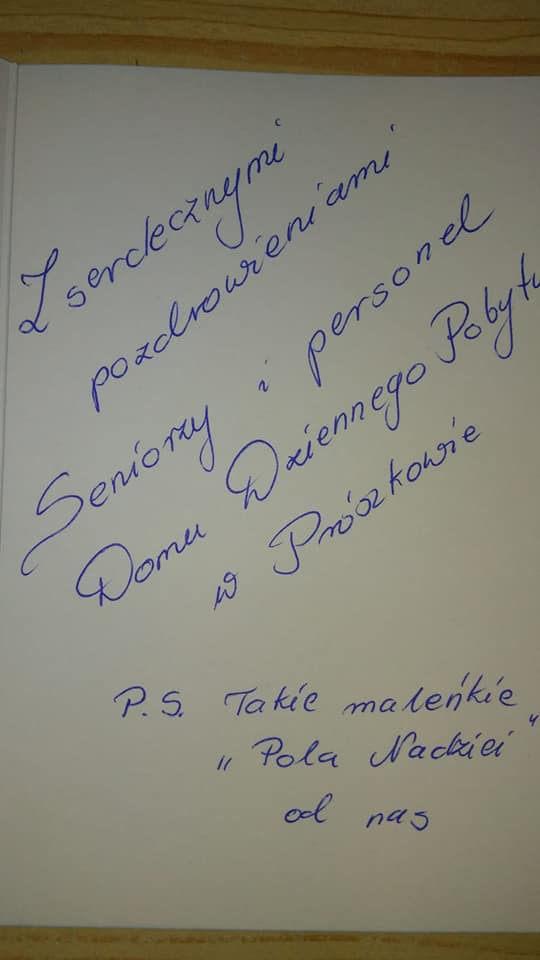 Z serdecznymi
pozdrowieniami
Seniorzy i personel
Domu Dziennego Pobytu
w Prószkowie
P.S. Takie maleńkie
„Pola Nadziei"
od nas